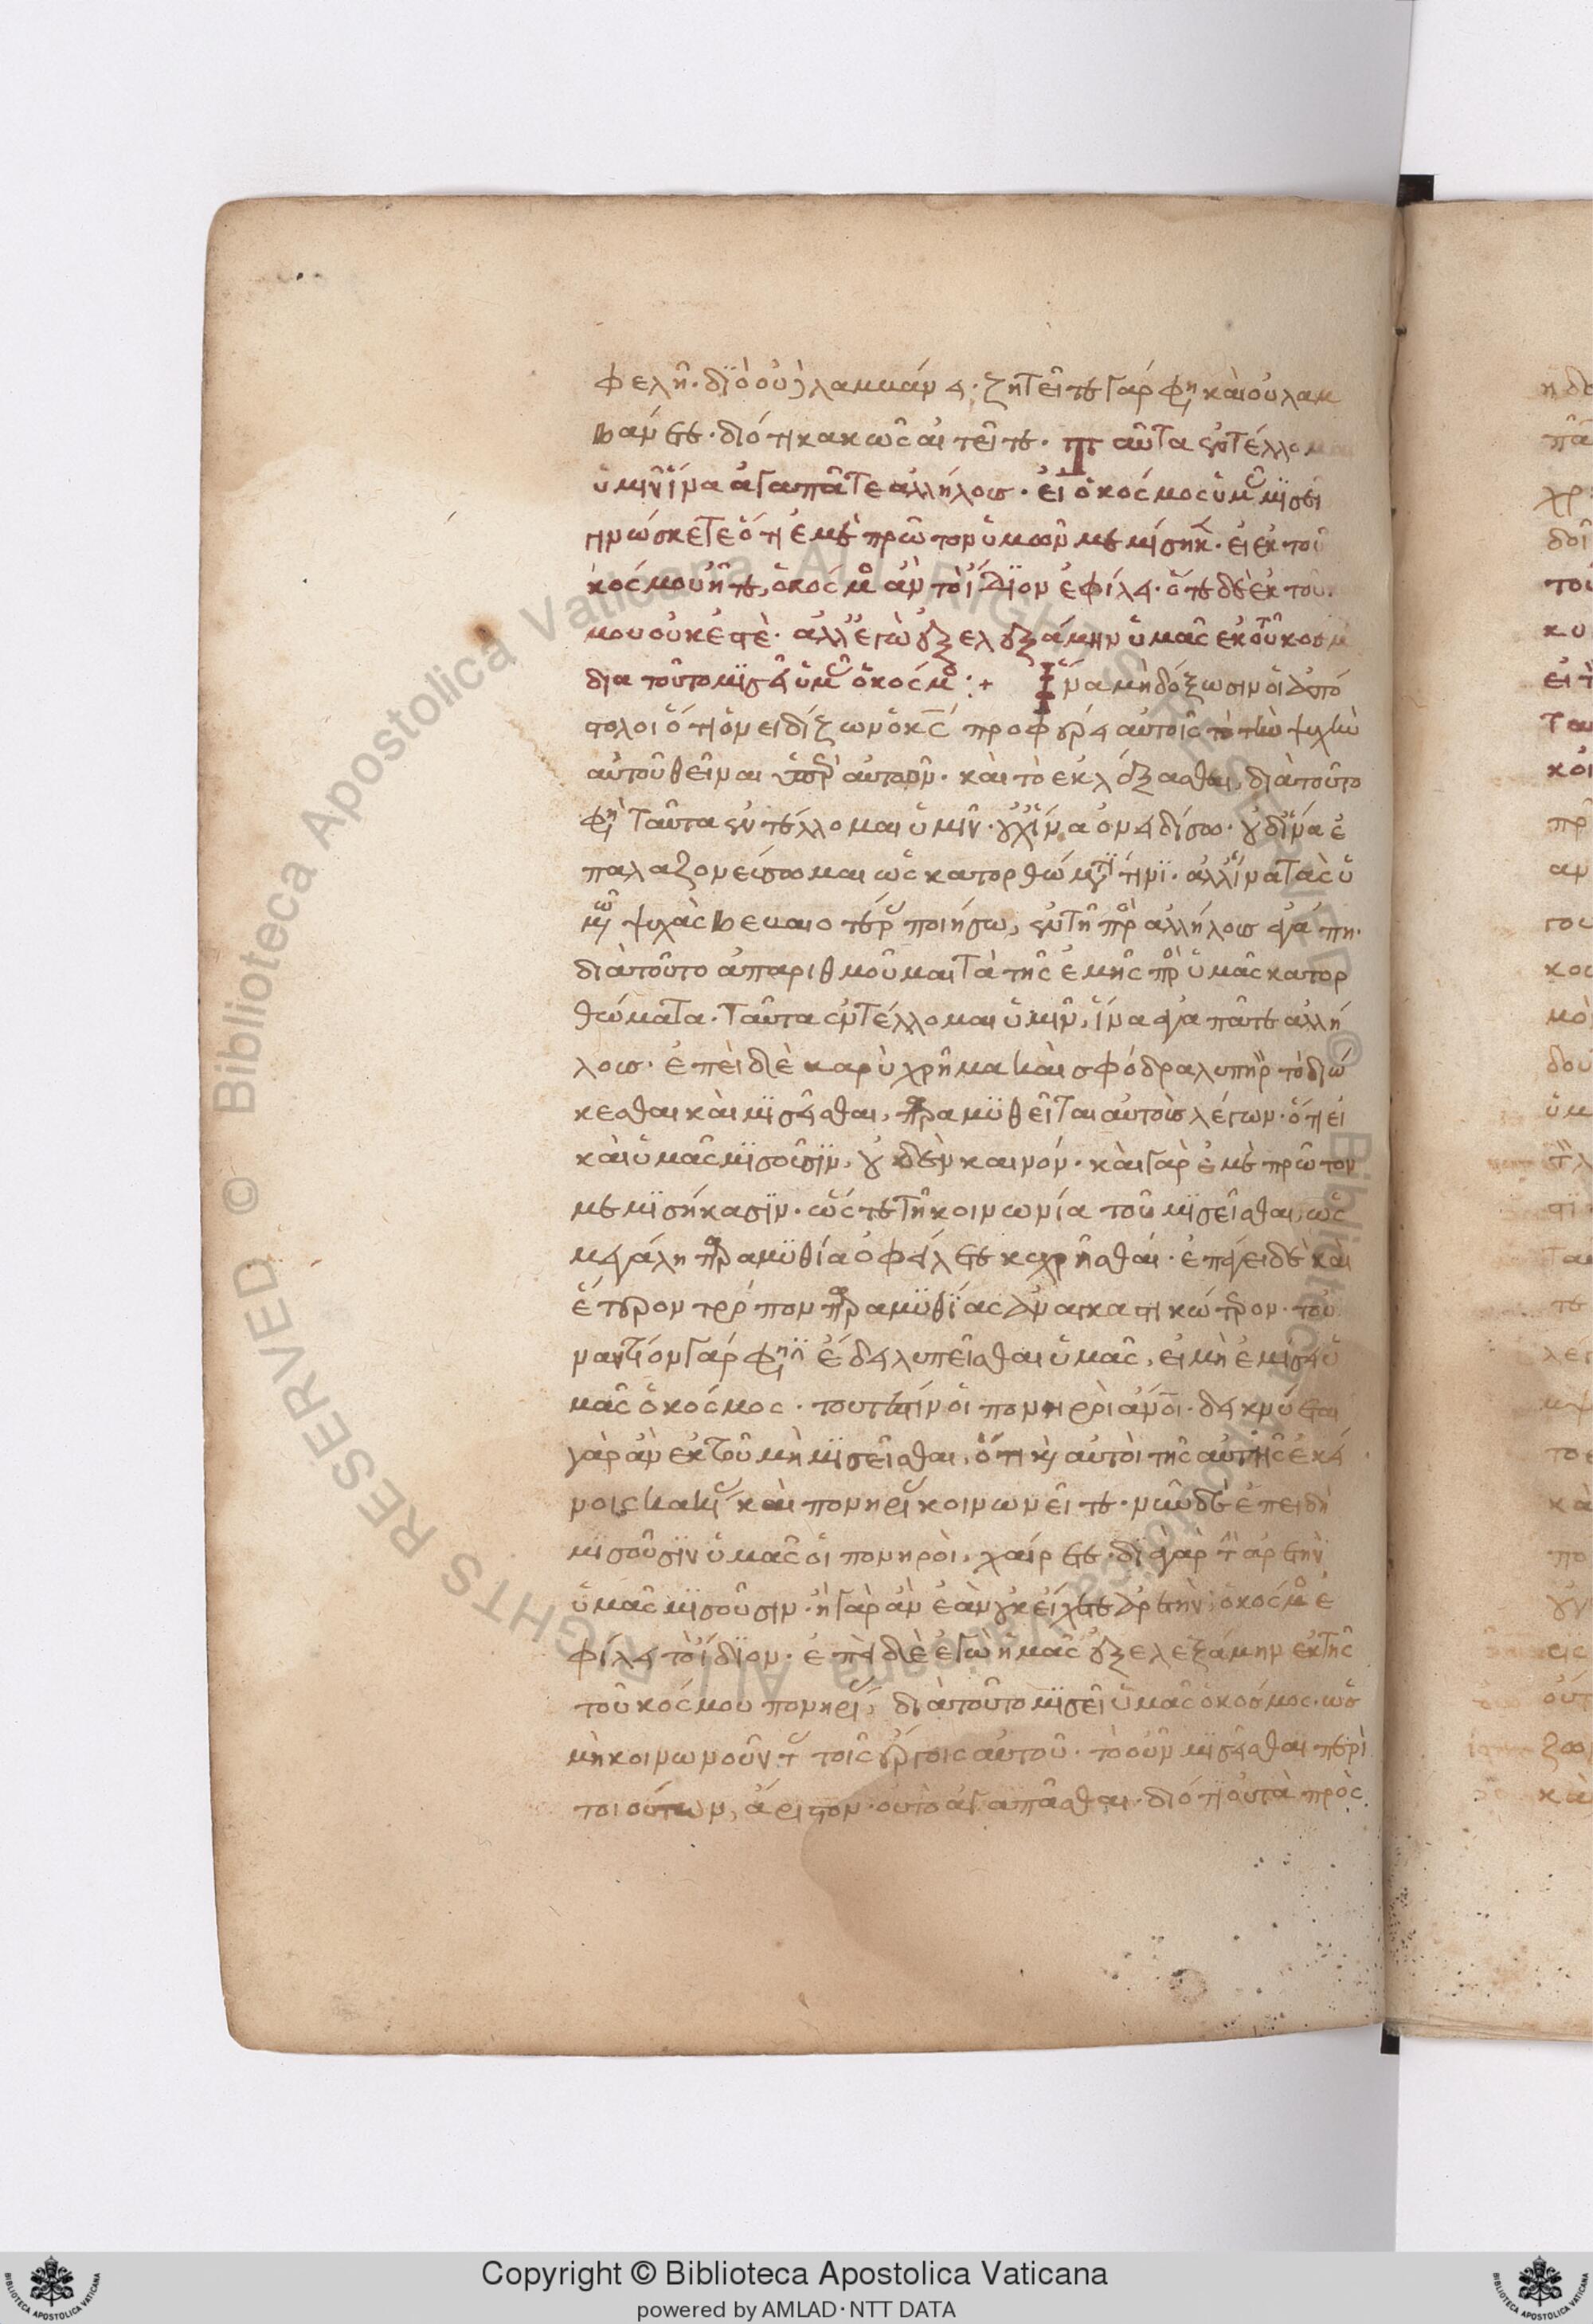 φελῆ· διὸ οὐ λαμβάνει· ζητεῖτε γάρ φη καὶ οὐ λαμ
βάνετε· διότι κακῶς αἰτεῖτε· Ταῦτα ἐντέλλομαι
ὑμῖν ἵνα ἀγαπᾶτε ἀλλήλους· εἰ ὁ κόσμος ὑμᾶς μισεῖ
γινώσκετε ὅτι ἐμὲ πρῶτον ὑμῶν μεμίσηκ· εἰ ἐκ τοῦ
κόσμου ἦτε, ὁ κόσμος ἂν τὸ ἴδιον ἐφίλει· ὅτι δὲ ἐκ τοῦ
μου οὐκ ἐστὲ· ἀλλ' ἐγὼ ἐξελεξάμην ὑμᾶς ἐκ τοῦ κοσμ
διὰ τοῦτο μισεῖ ὑμᾶς ὁ κόσμος :+ Ἵνα μὴ δόξωσιν οἱ ἀπό
στολοι ὅτι ὀνειδίζων ὁ κς προφέρει αὐτοῖς τὸ τὴν ψυχὴν
αὐτοῦ θεῖναι ὑπὲρ αὐτῶν· καὶ τὸ ἐκλέξασθαι, διὰ τοῦτο
φη ταῦτα ἐντέλλομαι ὑμῖν· οὐχ ἵνα ὀνειδίσω· οὐδ' ἵνα ἐ
παλαζονεύσωμαι ὡς κατορθώματί τινι· ἀλλ' ἵνα τὰς ὑ
μῶν ψυχὰς βεβαιοτέρας ποιήσω, ἐν τῆ πρὸς ἀλλήλους ἀγάπη·
διὰ τοῦτο ἀπαριθμοῦμαι τὰ τῆς ἐμῆς πρὸς ὑμᾶς κατορ
θώματα· Ταῦτα ἐντέλλομαι ὑμῖν, ἵνα ἀγαπᾶτε ἀλλή
λους· ἐπεὶ δὲ βαρὺ χρῆμα καὶ σφόδρα λυπηρὸν τὸ διώ
κεσθαι καὶ μισεῖσθαι, παραμυθεῖται αὐτοὺς λέγων· ὅτι εἰ
καὶ ὑμᾶς μισοῦσιν, οὐδὲν καινόν· καὶ γὰρ ἐμὲ πρῶτον
μεμισήκασιν· ὥστε τῆ κοινωνία τοῦ μισεῖσθαι, ὡς
μεγάλη παραμυθία ὀφείλετε κεχρῆσθαι· ἐπάγει δὲ καὶ
ἕτερον τρόπον παραμυθίας ἀναγκαστικώτερον· τοὐ
ναντίον γάρ φησιν ἔδει λυπεῖσθαι ὑμᾶς, εἰ μὴ ἐμίσει ὑ
μᾶς ὁ κόσμος· τουτέστιν οἱ πονηροὶ ἄνοι· δεικνύεται
γὰρ ἂν ἐκ τοῦ μὴ μισεῖσθαι, ὅτι καὶ αὐτοὶ τῆς αὐτῆς ἐκεί
νοις κακίας καὶ πονηρίας κοινωνεῖτε· νῦν δὲ ἐπειδὴ
μισοῦσιν ὑμᾶς οἱ πονηροὶ, χαίρετε· διὰ γὰρ τὴν ἀρετὴν
ὑμᾶς μισοῦσιν· ἢ γὰρ ἂν ἐὰν οὐκ εἴχετε ἀρετὴν, ὁ κόσμος ἐ
φίλει τὸ ἴδιον· ἐπεὶ δὲ ἐγὼ ἡμᾶς ἐξελεξάμην ἐκ τῆς
τοῦ κόσμου πονηρίας, διὰ τοῦτο μισεῖ ὑμᾶς ὁ κόσμος· ὡς
μὴ κοινωνοῦντας τοῖς ἔργοις αὐτοῦ· τὸ οὖν μισεῖσθαι περὶ
τοιούτων, ἄριστον· οὐ τὸ ἀγαπᾶσθαι· διότι αὐτὰ πρὸς